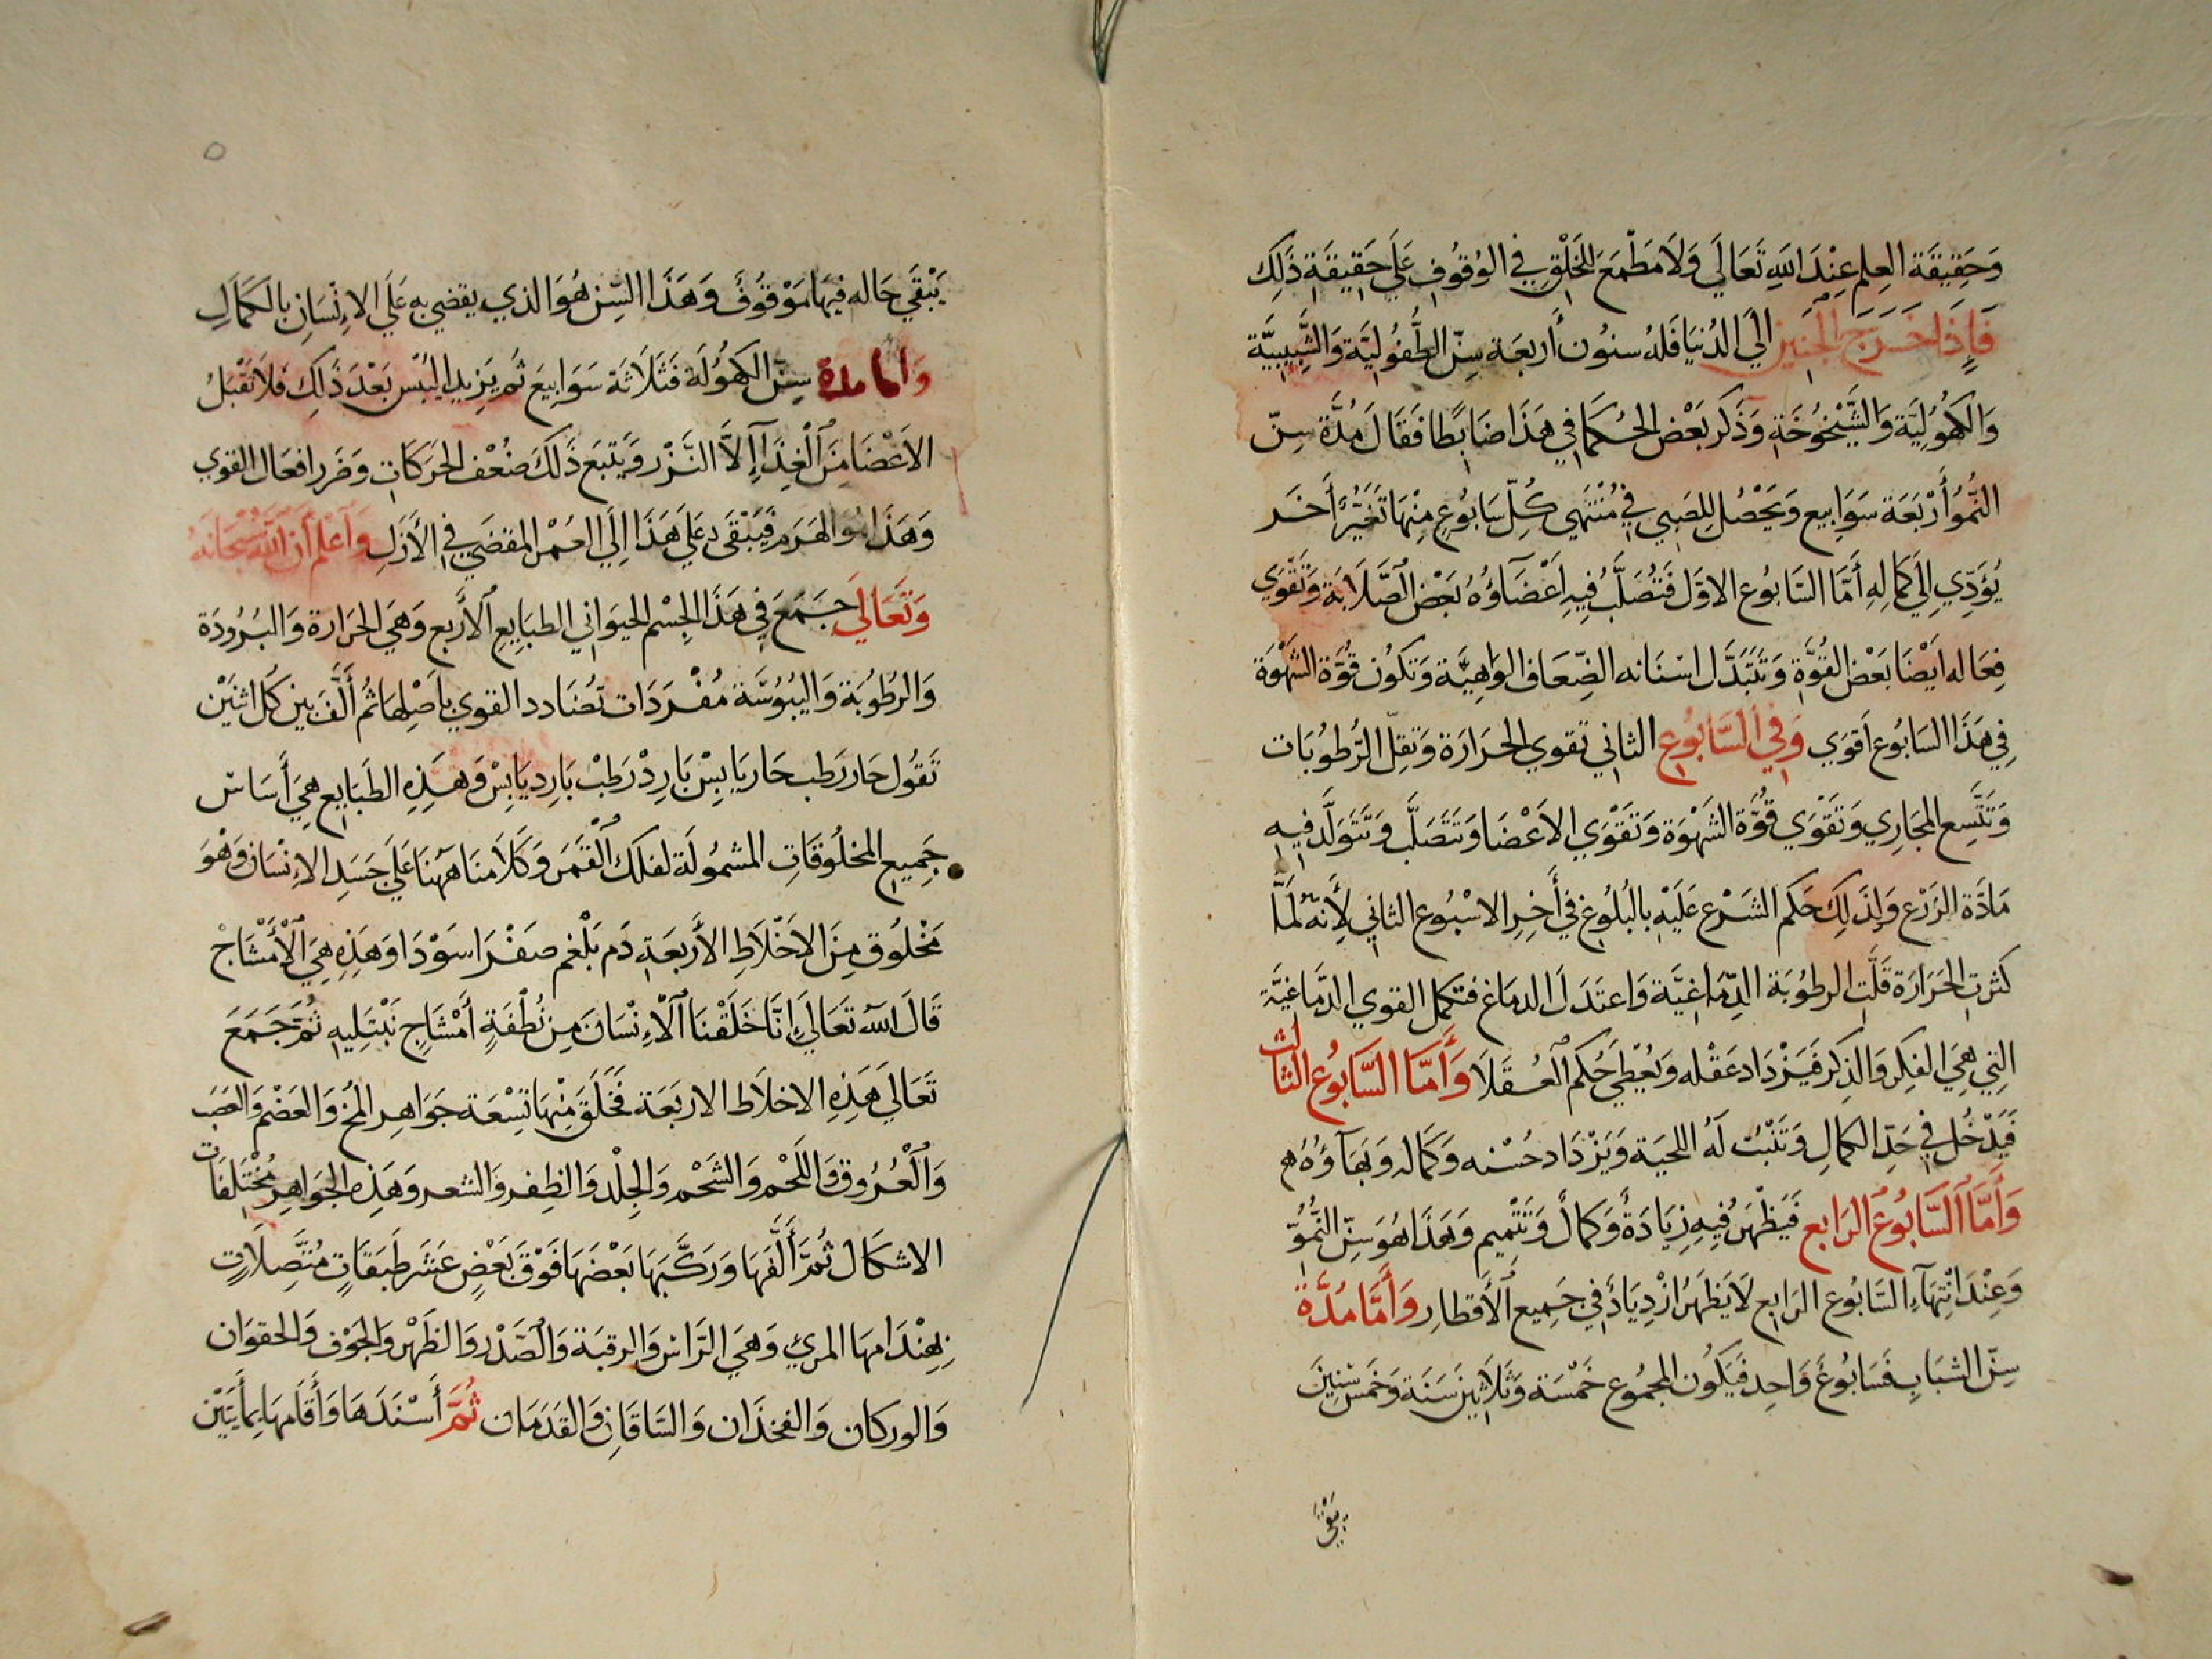 وَحَقِيقَة العِلم عِنْدَ اللهِ تَعَالَي وَلَا مَطْمَعَ لِلخَلْقِ فِي الوُقُوفِ عَلَي حَقِيقَةِ ذَلِكَ
فَإِذَا خَرَجَ الجَنِين إلَي الدُنيَا فَلهُ سنُون أَربعَة سِنّ الطُّفُولِيَّة وَالشَّبِيبِيَّة
وَالكُهُولِيَّة وَالشَّيْخُوخَة وَذَكَر بَعْض الحُكَمَا فِي هَذَا ضَابِطًا فَقَالَ مُدَّة سِنّ
النُّمُوّ أَرْبَعَة سَوَابِيع وَيَحْصُل لِلصَبِي فِي مُنْتَهَي كُلّ سَابُوعٍ مِنْهَا تَغَيُّرٌ أَخَر
يُؤَدِّي إلَي كَمَالِهِ أَمَّا السَّابُوع الاوَّل فَتُصَلَّبُ فِيهِ أَعْضَآؤُهُ بَعْض الصَّلَابَة وَتَقْوَي
فِعَاله ايْضَا بَعْض القُوَّة وَتَتَبَدَّل اسْنَانه الضِّعَاف الوَاهِيَة وَتَكُون قُوَّة الشَهْوَة
فِي هَذَا السَابُوع اَقوَي وَفِي السَّابُوع الثاني تقوي الحَرَارَة وَتقِلّ الرُّطُوبَات
وَتَتَّسِع المجَارِي وَتَقْوَي قُوَّة الشَهْوَة وَتَقْوَي الاَعْضَا وَتَتَصَلَّب وَتَتَوَلَّد فيهِ
مَادَّة الزَرْع وَلِذَلِكَ حَكَم الشَرْع عَلَيْهِ بالبُلُوغِ فِي أَخِرِ الاسْبُوع الثاني لِأَنَّهُ لَمَّا
كثرت الحَرَارَة قَلَّت الرطُوبَة الدِّمَاغيَّة وَاعتَدَلَ الدماغ فتكمل القوي الدَّمَاغيَّة
التِي هِيَ الفِكِر وَالذِكر فَيَزْدَاد عَقْله وَيُعْطَي حُكم العُقَلَا وَأَمَّا السَّابُوع الثالث
فَيَدْخُل فِي حَدّ الكمالِ وَتَنْبُت لَهُ اللحيَة وَيَزْدَاد حُسْنه وَكَمَاله وَبَهَآؤُهُ
وَأَمَّا السَّابُوعُ الرَابع فَيَظْهَرُ فِيهِ زِيَادَةٌ وَكمالٌ وَتَتْمِيم وَهَذَا هُوَ سِنّ النُّمُوّ
وَعِنْدَ انْتِهَآءِ السَّابُوع الرَابع لَا يَظهَرُ ازْدِيَادٌ فِي جَمِيع الأَقطارِ وَأَمَّا مُدَّةُ
سِنّ الشبَابِ فَسَابُوعٌ وَاحِد فَيَكُون المجمُوع خَمْسَة وَثَلَاثِينَ سَنَة وَخَمْس سِنِينَ
يَبْقَي
يَبْقَي حَاله فيهَا مَوْقُوفٌ وَهَذَا السِّن هُوَ الذي يقضي بهِ عَلَي الإنْسَانِ بالكَمَالِ
وَاما مدة سِنّ الكهُولَة فَثَلَاثَة سَوَابِيعَ ثُم يَزِيد اليُبْس بَعْدَ ذَلِكَ فَلَا تَقْبَلُ
الاَعْضَا مِنَ الْغِذَآ إِلَّا النَّزْر وَيَتْبَع ذَلَكَ ضُعْف الحَرَكَات وَضَرَر افعَال القوي
وَهَذَا هُوَ الهَرَم فَيَبْقَي عَلَي هَذَا إلَي العُمْر المقضَي فِي الأَزَلِ وَاعْلَم أَنَ اللهَ سُبْحَانَهُ
وَتَعَالَي جَمَعَ فِي هَذَا الجِسْم الحيوَاني الطبَايع الأَربع وَهَي الحَرَارة وَالبُرُودَة
وَالرطُوبَة وَاليبُوسَة مُفْرَدَات تُضَادد القوي بأَصلِهَا ثُم أَلَّفَ بين كُل اثنَيْن
تَقُول حَار رَطب حَار يَابِسْ بَارِدْ رَطِبْ بَارِد يَابِسْ وَهَذِهِ الطَبَايِع هِيَ أَسَاسْ
جَمِيع المخلُوقَاتِ المشمُولَة لفلَك القَمَر وَكَلَامنَا هَهُنَا عَلَي جَسَدِ الاِنْسَان وَهْوَ
مَخْلُوق مِنَ الاخْلَاطِ الأَربعَة دَم بَلْغم صفْرَا سَوْدَا وَهَذِهِ هِيَ الأَمْشَاجْ
قَالَ اللهُ تَعَالَي إِنَّا خَلَقْنَا الْإِنْسَانَ مِن نُطْفَةٍ أَمْشَاجٍ نَبْتَلِيهِ ثُمَّ جَمَعَ
تَعَالَي هَذِهِ الاخلَاط الاربَعَة فَخَلَقَ مِنْهَا تِسْعَة جَوَاهِر المُخ وَالعَضْم وَالعَصَب
وَالْعُرُوق وَاللَحْم وَالشَحْم وَالجِلْد وَالظفر وَالشعر وَهَذِهِ الجَوَاهِر مُخْتَلفَات
الاشكَال ثُمَّ أَلَّفَهَا وَرَكَّبَهَا بَعْضَهَا فَوْقَ بَعْضٍ عَشَر طَبَقَاتٍ مُتَّصِلَاتٍ
بِهنْدَامهَا المرئي وَهَي الرَّاس وَالرقبَة وَالصَدْر وَالظَهْر وَالجَوْف وَالحقوَان
وَالوركان وَالفخذَان وَالسَّاقَان وَالقَدَمَان ثُمَّ أَسْنَدَهَا وَأَقَامهَا بمأَيَتَيْن